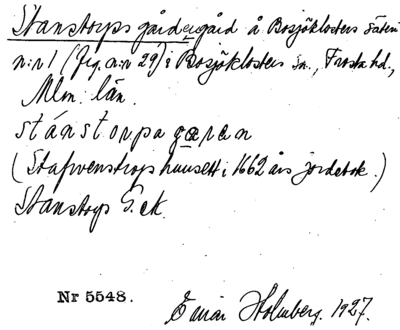 Stanstorps gårdergård å Bosjöklosters säteri
n:r 1 (fig. n:r 29) i Bosjöklosters sn., Frosta hd.,
Mlm. län.
stánstorpa gæren
(Stafwenstrops huusett i 1662 års jordebok.)
Stanstorps G. ek.
Nr 5548. Einar Holmberg. 1927.